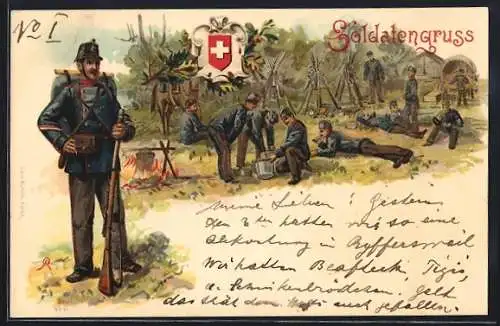 No I
Soldatengruss
meine Lieben! Gestern
den 3ten hatten wir so eine
Abkochung in Ryffersweil
Wir hatten Beafsteck,
u. Schinkenbrödchen. Gelt
das hät dem auch gefallen.